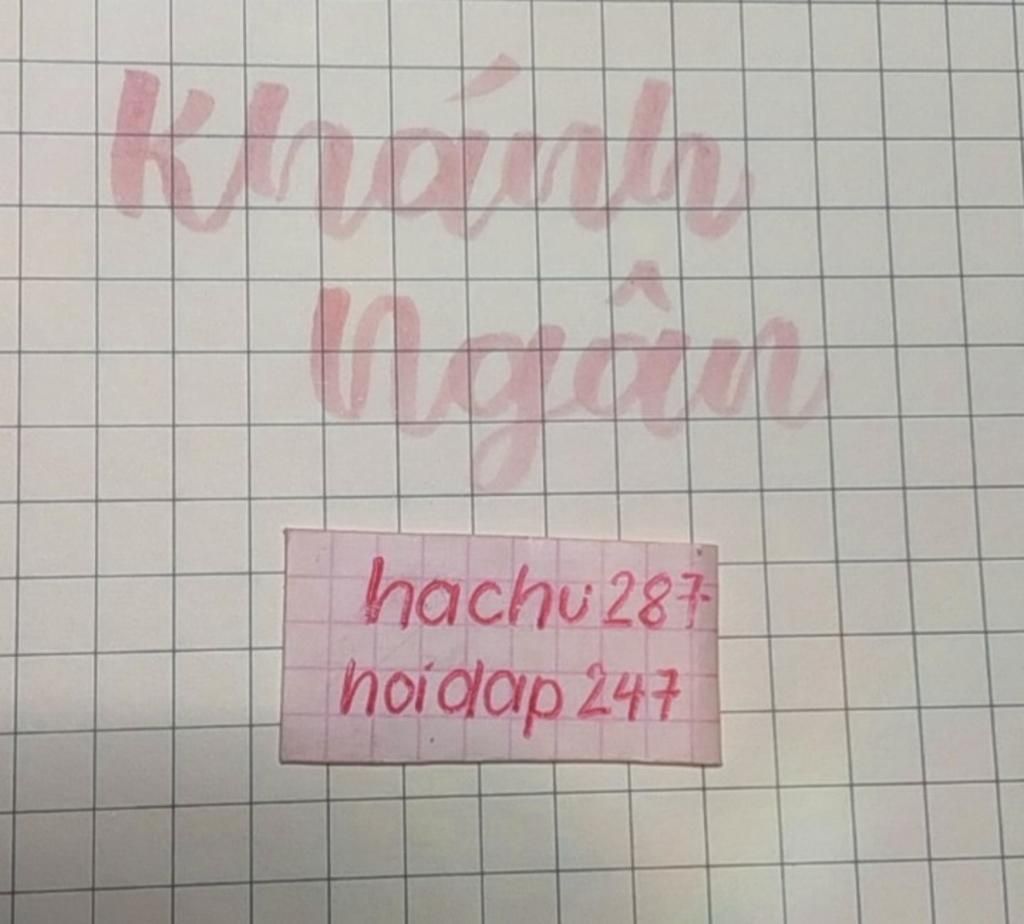 Khánh
Ngân
hachu287
hoidap247